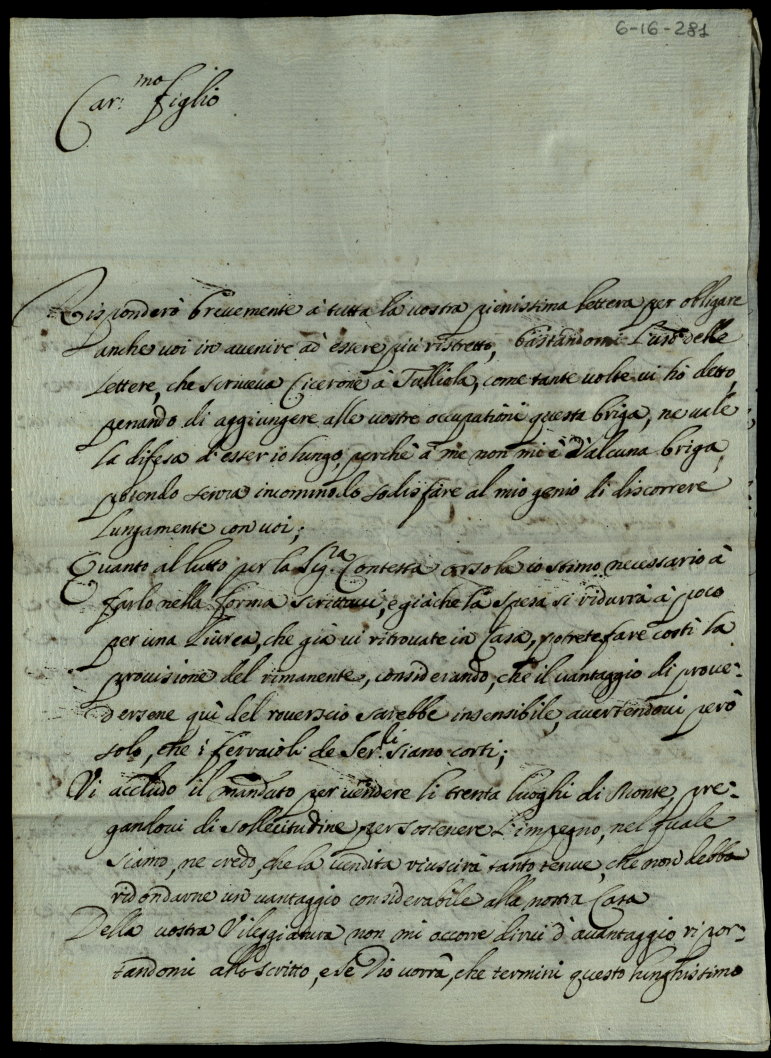 6-16-281
Car:mo figlio
Risponderò brevemente à tutta la vostra pienissima lettera per obligare
anche voi in avenire ad essere più ristretto, bastandomi l'uso delle
lettere, che scriveva Cicerone à Tulliola, come tante volte vi hò detto,
penando di aggiungere alle vostre occupationi questa briga, ne vale
la difesa d'esser io lungo, perchè à me non mi è d'alcuna briga,
potendo senza incommodo sodisfare al mio genio di discorrere
lungamente con voi;
Quanto al lutto per la Sig.ra Contessa Orsola io stimo necessario à
farlo nella forma e giàche la spesa si ridurrà à poco
per una Livrea, che già vi ritrovate in Casa, potrete fare costì la
provisione del rimanente, considerando, che il vantaggio di prove-
dersene quì del roverscio sarebbe insensibile, avertendovi però
solo, che i ferraioli de Ser.li siano corti;
Vi accludo il mandato per vendere li trenta luoghi di Monte pre-
gandovi di sollecitudine per sostenere l'impegno, nel quale
siamo, ne credo, che la vendita riuscirà tanto tenue, che non debba
ridondarne un vantaggio considerabile alla nostra Casa
Della vostra Vileggiatura non mi occorre dirvi d'avantaggio ripor-
tandomi allo scritto, e se Dio vorrà, che termini questo lunghissimo